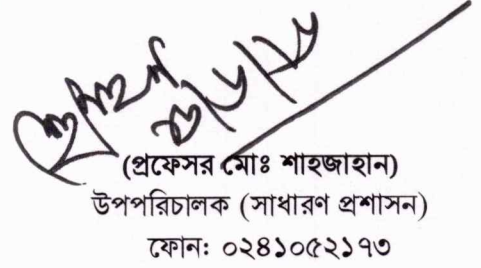 (প্রফেসর মোঃ শাহজাহান)
উপপরিচালক (সাধারণ প্রশাসন)
ফোন: ০২৪১০৫২১৭৩